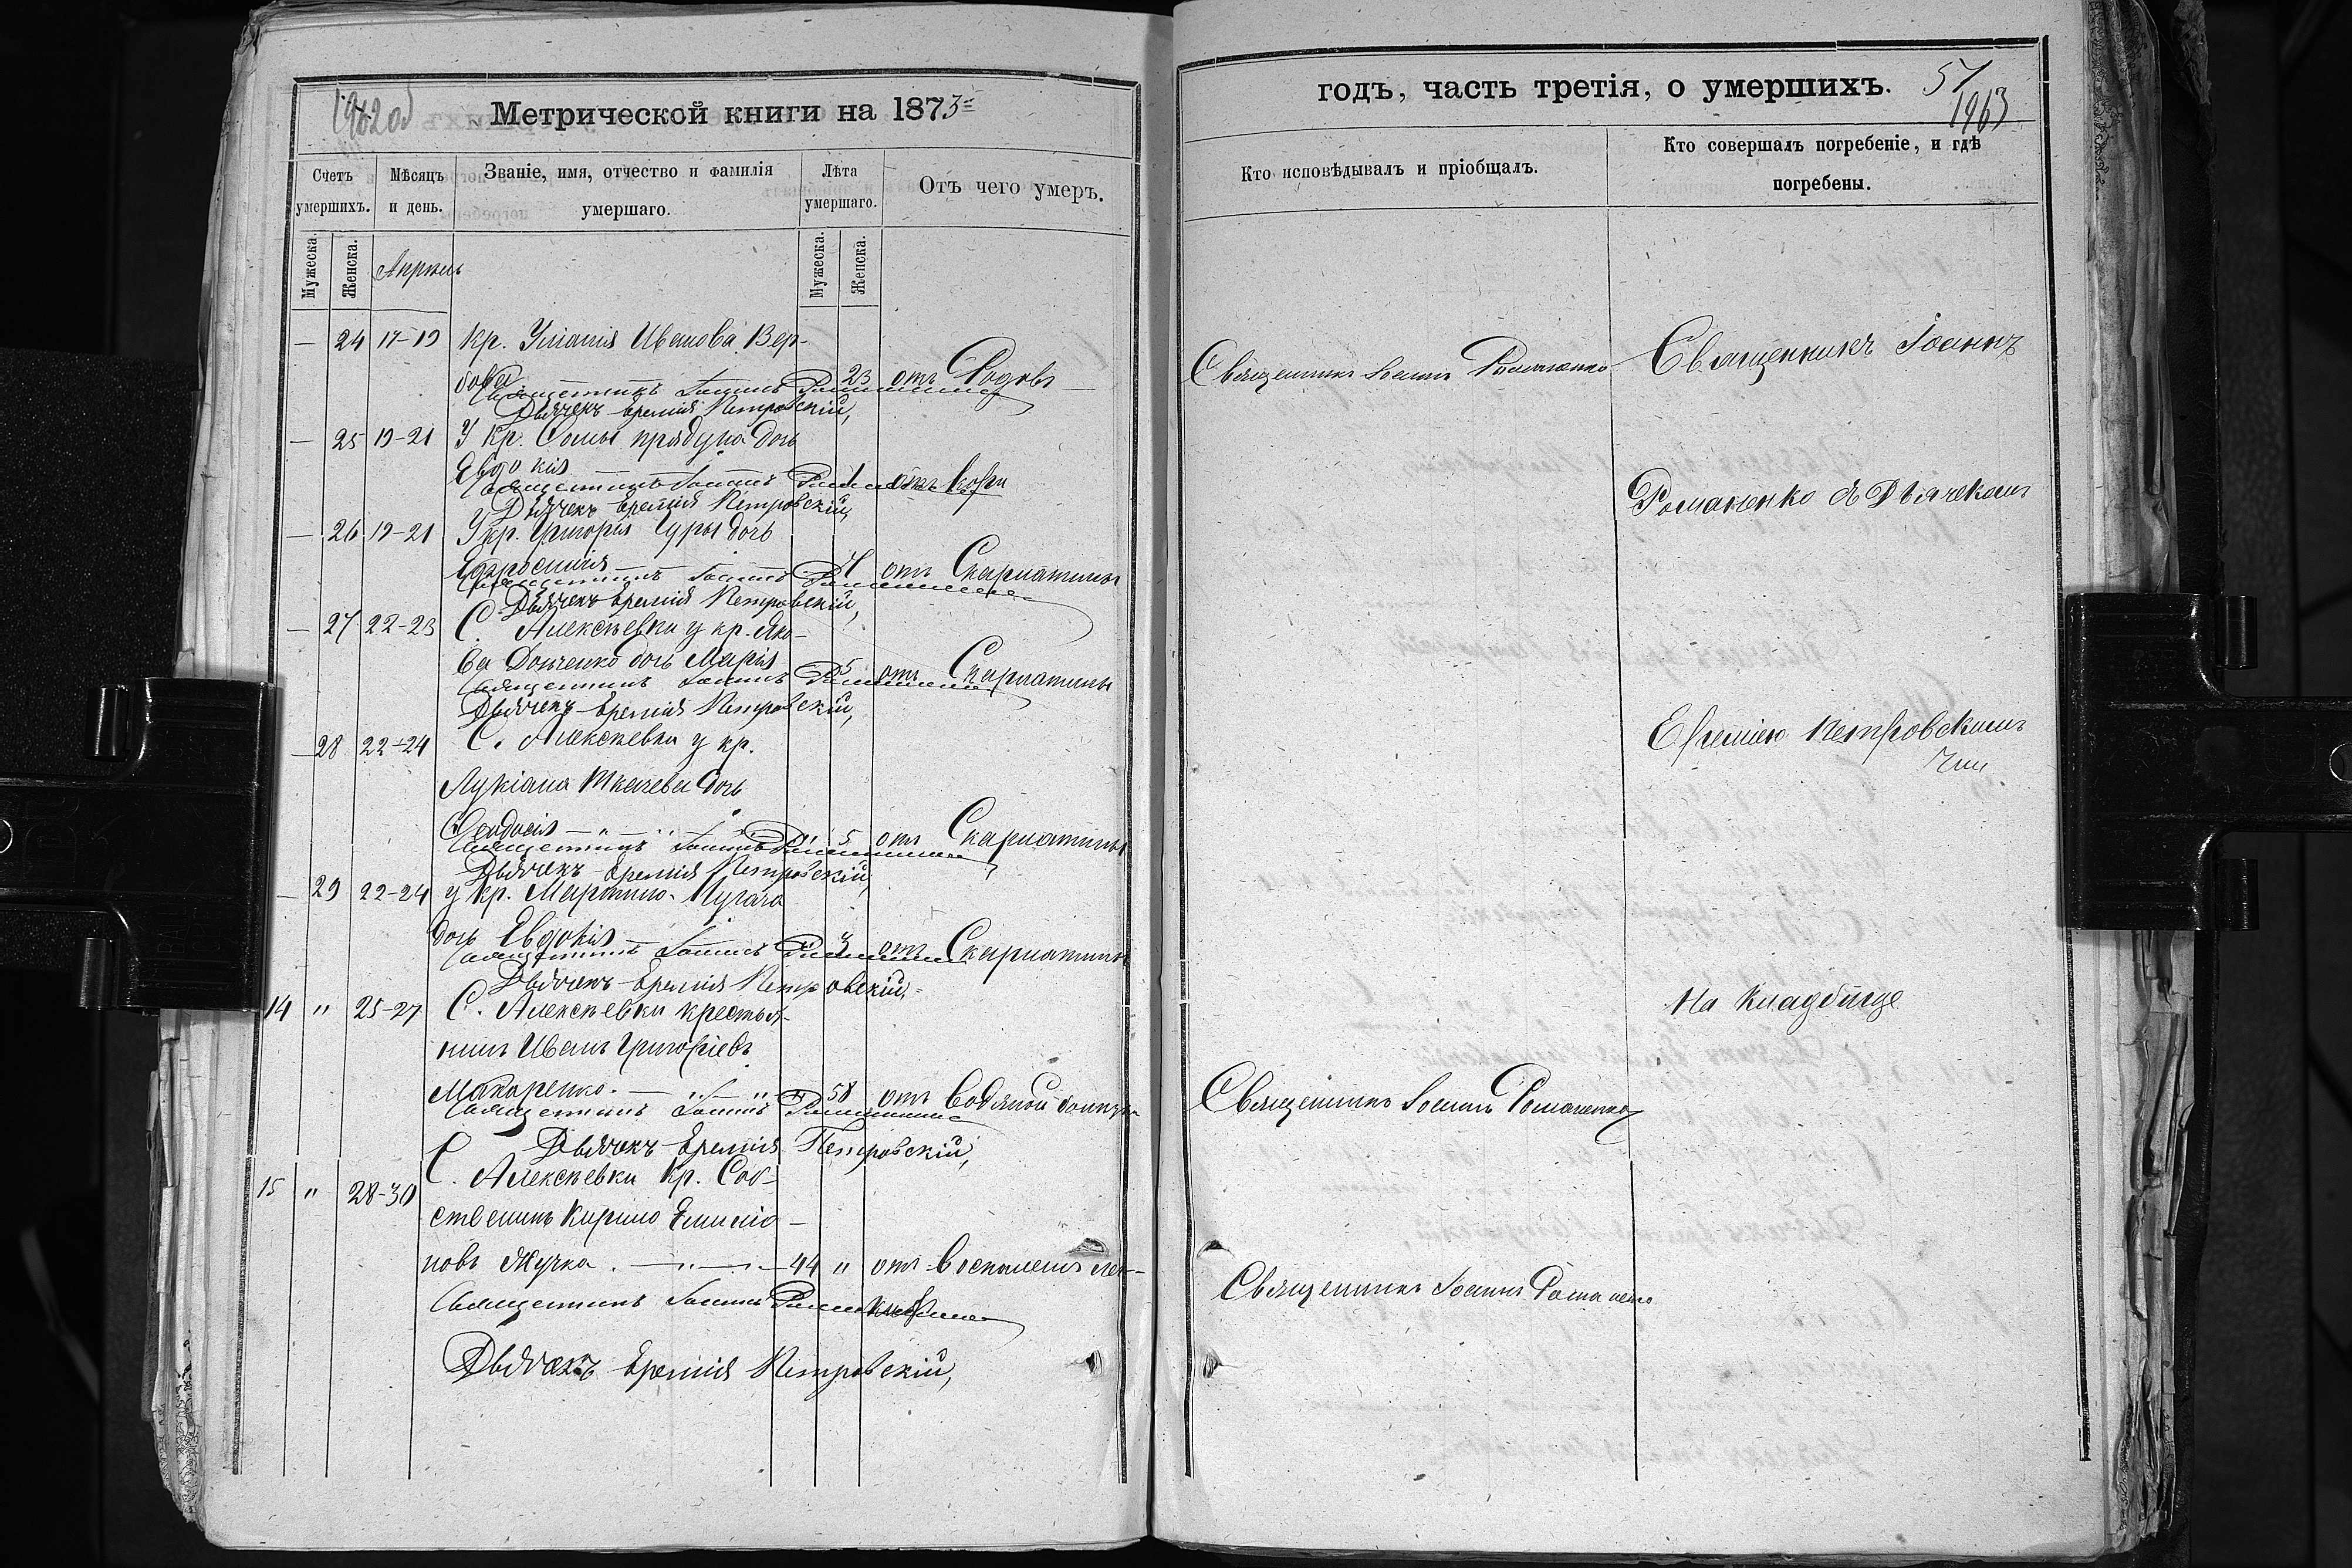 1962об
Метрической книги на 1873
Счетъ умершихъ.
Мѣсяцъ и день.
Званіе, имя, отчество и фамилія умершаго.
Лѣта умершаго.
Отъ чего умеръ.
Мужеска.
Женска.
Апрель
Мужеска.
Женска.
— 24 17-19 Кр. Уліанія Иванова Вер-
бова 23 отъ Родовъ
Священникъ Іоаннъ Романенко
Дьячекъ Еремія Петровскій,
— 25 19-21 У кр. Сомы прядуна дочь
Евдокія 1 отъ кори
Священникъ Іоаннъ Романенко
Дьячекъ Еремія Петровскій,
— 26 19-21 У кр. Григорія Чуры дочь
Евфросинія 4 отъ Скарлатины
Священникъ Іоаннъ Романенко
Дьячекъ Еремія Петровскій,
— 27 22-23 С. Алексѣевки у кр. Яко-
ва Донченко дочь Марія 5 отъ Скарлатины
Священникъ Іоаннъ Романенко
Дьячекъ Еремія Петровскій,
— 28 22-24 С. Алексѣевки у кр.
Лукіана Ткачева дочь
Феодосія — " — " 5 отъ Скарлатины
Священникъ Іоаннъ Романенко
Дьячекъ Еремія Петровскій,
— 29 22-24 у кр. Мартина Пугача
дочь Евдокія — " 3 отъ Скарлатины
Священникъ Іоаннъ Романенко
Дьячекъ Еремія Петровскій,
14 " 25-27 С. Алексѣевки крестья-
нинъ Иванъ Григоріевъ
Макаренко. — " — " 58 отъ водяной болѣзни
Священникъ Іоаннъ Романенко
Дьячекъ Еремія Петровскій,
15 " 28-30 С. Алексѣевки Кр. Соб-
ственникъ Кирило Емилiо-
новъ Жучка. — " — 44 " отъ воспаленія лег-
кихъ
Священникъ Іоаннъ Романенко
Дьячекъ Еремія Петровскій,
годъ, часть третія, о умершихъ.
57
1963
Кто исповѣдывалъ и пріобщалъ.
Кто совершалъ погребеніе, и гдѣ погребены.
Священникъ Іоаннъ Романенко
Священникъ Іоаннъ
Романенко съ Дьячкомъ
Еремiею Петровскимъ
На Кладбище
Священникъ Іоаннъ Романенко
Священникъ Іоаннъ Романенко